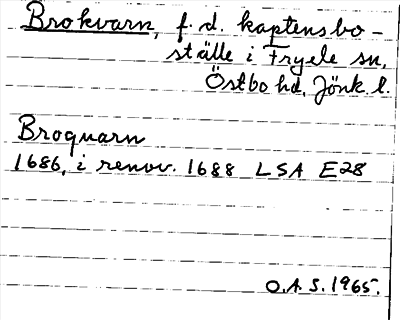 Brokvarn, f. d. kaptensbo-
ställe i Fryele sn,
Östbo hd, Jönk. l.
Broquarn
1686, i renov. 1688 LSA E28
O.A.S. 1965.